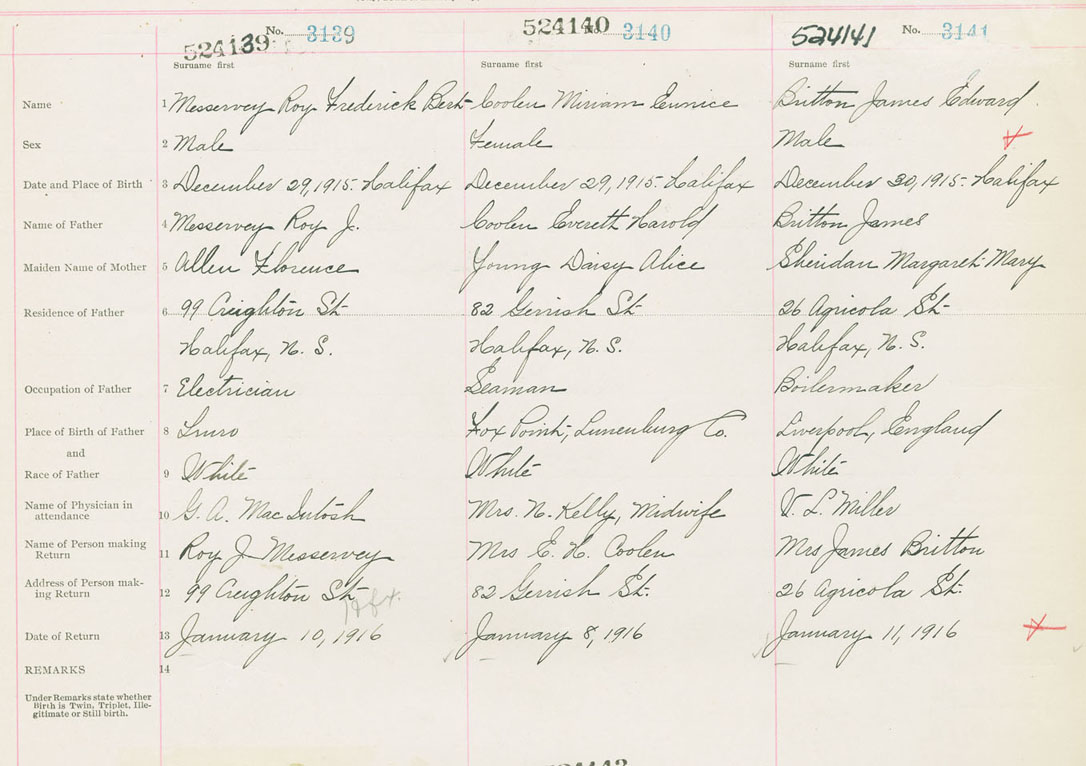 524139 No. 3139 524140 No. 3140 524141 No. 3141
Surname first Surname first Surname first
Name 1 Messervey Roy Frederick Bert Coolen Miriam Eunice Britton James Edward
Sex 2 Male Female Male
Date and Place of Birth 3 December 29, 1915 - Halifax December 29, 1915 - Halifax December 30, 1915 - Halifax
Name of Father 4 Messervey Roy J. Coolen Everett Harold Britton James
Maiden Name of Mother 5 Allen Florence Young Daisy Alice Sheridan Margaret Mary
Residence of Father 6 99 Creighton St. 82 Gerrish St. 26 Agricola St.
Halifax, N. S. Halifax, N. S. Halifax, N. S.
Occupation of Father 7 Electrician Seaman Boilermaker
Place of Birth of Father 8 Truro Fox Point, Lunenburg Co. Liverpool, England
and
Race of Father 9 White White White
Name of Physician in
attendance 10 G. A. MacIntosh Mrs. N. Kelly, Midwife V. L. Miller
Name of Person making
Return 11 Roy J. Messervey Mrs E. H. Coolen Mrs James Britton
Address of Person mak-
ing Return 12 99 Creighton St. Hfx. 82 Gerrish St. 26 Agricola St.
Date of Return 13 January 10, 1916 January 8, 1916 January 11, 1916
REMARKS 14
Under Remarks state whether
Birth is Twin, Triplet, Ille-
gitimate or Still birth.